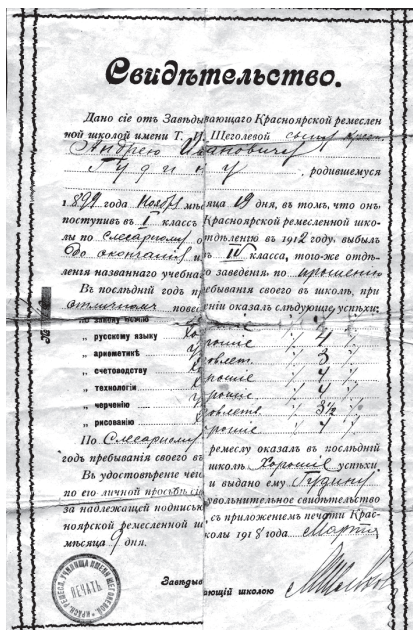 Свидѣтельство.
Дано сіе отъ Завѣдывающаго Красноярской ремеслен
ной школой имени Т. И. Щеголевой сыну крест.
Андрею Ивановичу
Гудину, родившемуся
1899 года Ноября мѣсяца 19 дня, въ томъ, что онъ
поступивъ въ I классъ Красноярской ремесленной шко-
лы по слесарному отдѣленію въ 1912 году, выбылъ
до окончанія изъ IV класса, того-же отдѣ-
ленія названнаго учебнаго заведенія, по прошенію
Въ послѣдній годъ пребыванія своего въ школѣ, при
отличномъ поведеніи оказалъ слѣдующіе успѣхи:
по закону Божію
„ русскому языку Хорошіе 4
„ ариѳметикѣ Удовлет. 3
„ счетоводству Хорошіе 4
„ технологіи Хорошіе 4
„ черченію Удовлетв. 3½
„ рисованію Хорошіе 4
По Слесарному ремеслу оказалъ въ послѣдній
годъ пребыванія своего въ школѣ Хорошіе успѣхи
Въ удостовѣреніе чего и выдано ему Гудину
по его личной просьбѣ сіе увольнительное свидѣтельство
за надлежащей подписью съ приложеніемъ печати Крас-
ноярской ремесленной школы 1918 года Марта
мѣсяца 9 дня.
ПЕЧАТЬ
Завѣдывающій школою